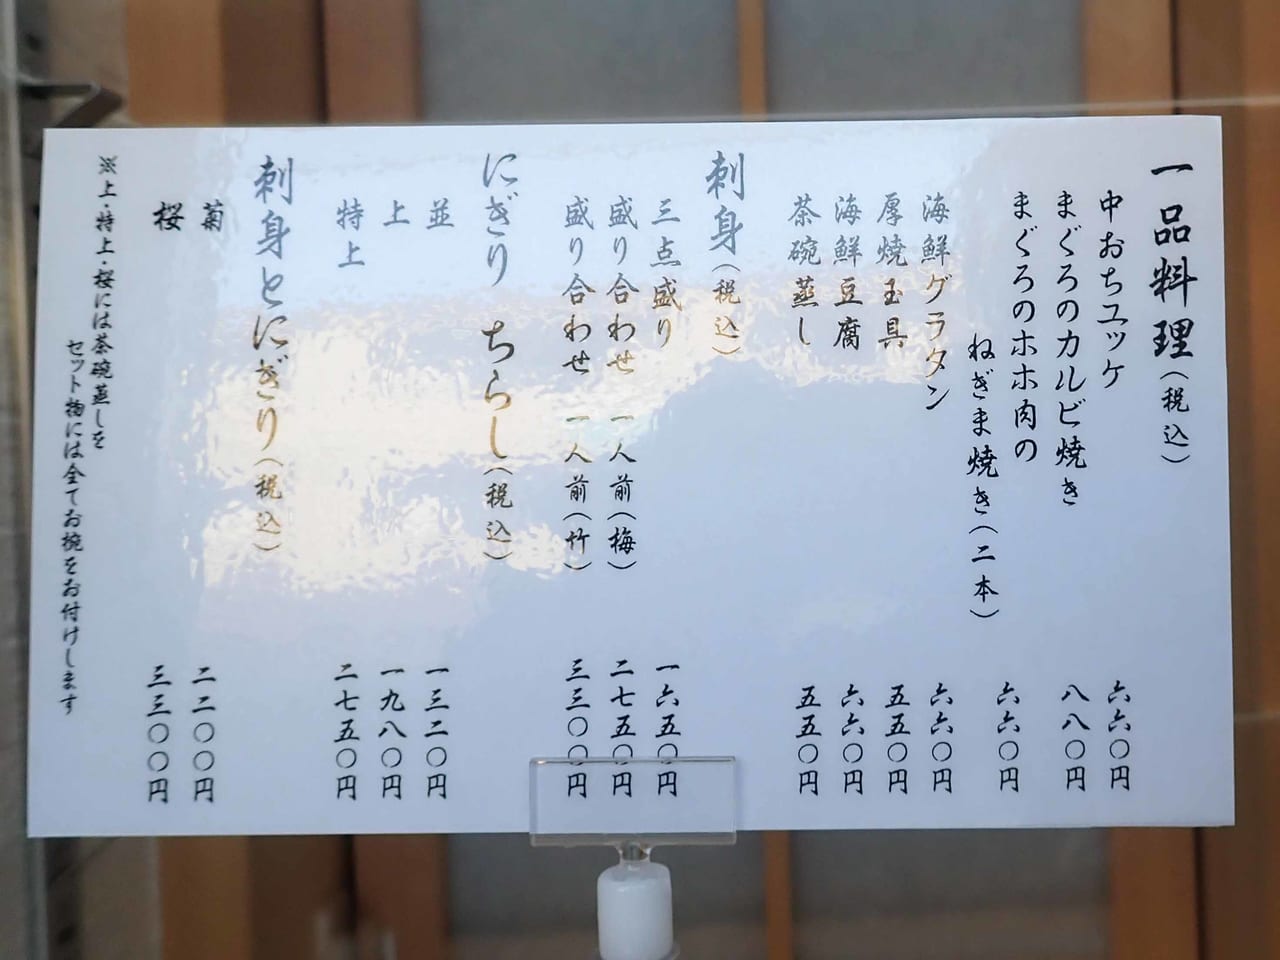 一品料理（税込）
中おちユッケ 六六〇円
まぐろのカルビ焼き 八八〇円
まぐろのホホ肉の
ねぎま焼き（二本） 六六〇円
海鮮グラタン 六六〇円
厚焼玉具 五五〇円
海鮮豆腐 六六〇円
茶碗蒸し 五五〇円
刺身（税込）
三点盛り 一六五〇円
盛り合わせ 一人前（梅） 二七五〇円
盛り合わせ 一人前（竹） 三三〇〇円
にぎり ちらし（税込）
並 一三二〇円
上 一九八〇円
特上 二七五〇円
刺身とにぎり（税込）
菊 二二〇〇円
桜 三三〇〇円
※上・特上・桜には茶碗蒸しを
セット物には全てお椀をお付けします